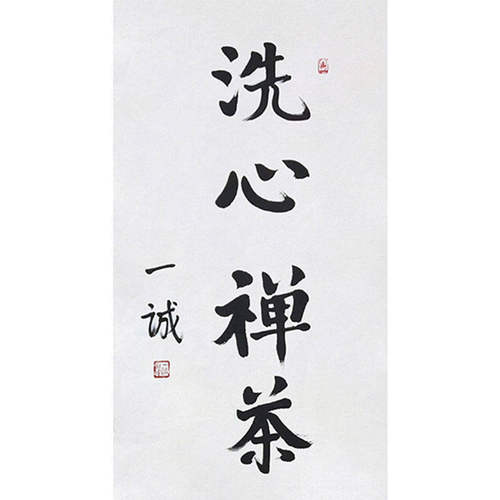 洗心禅茶
一诚